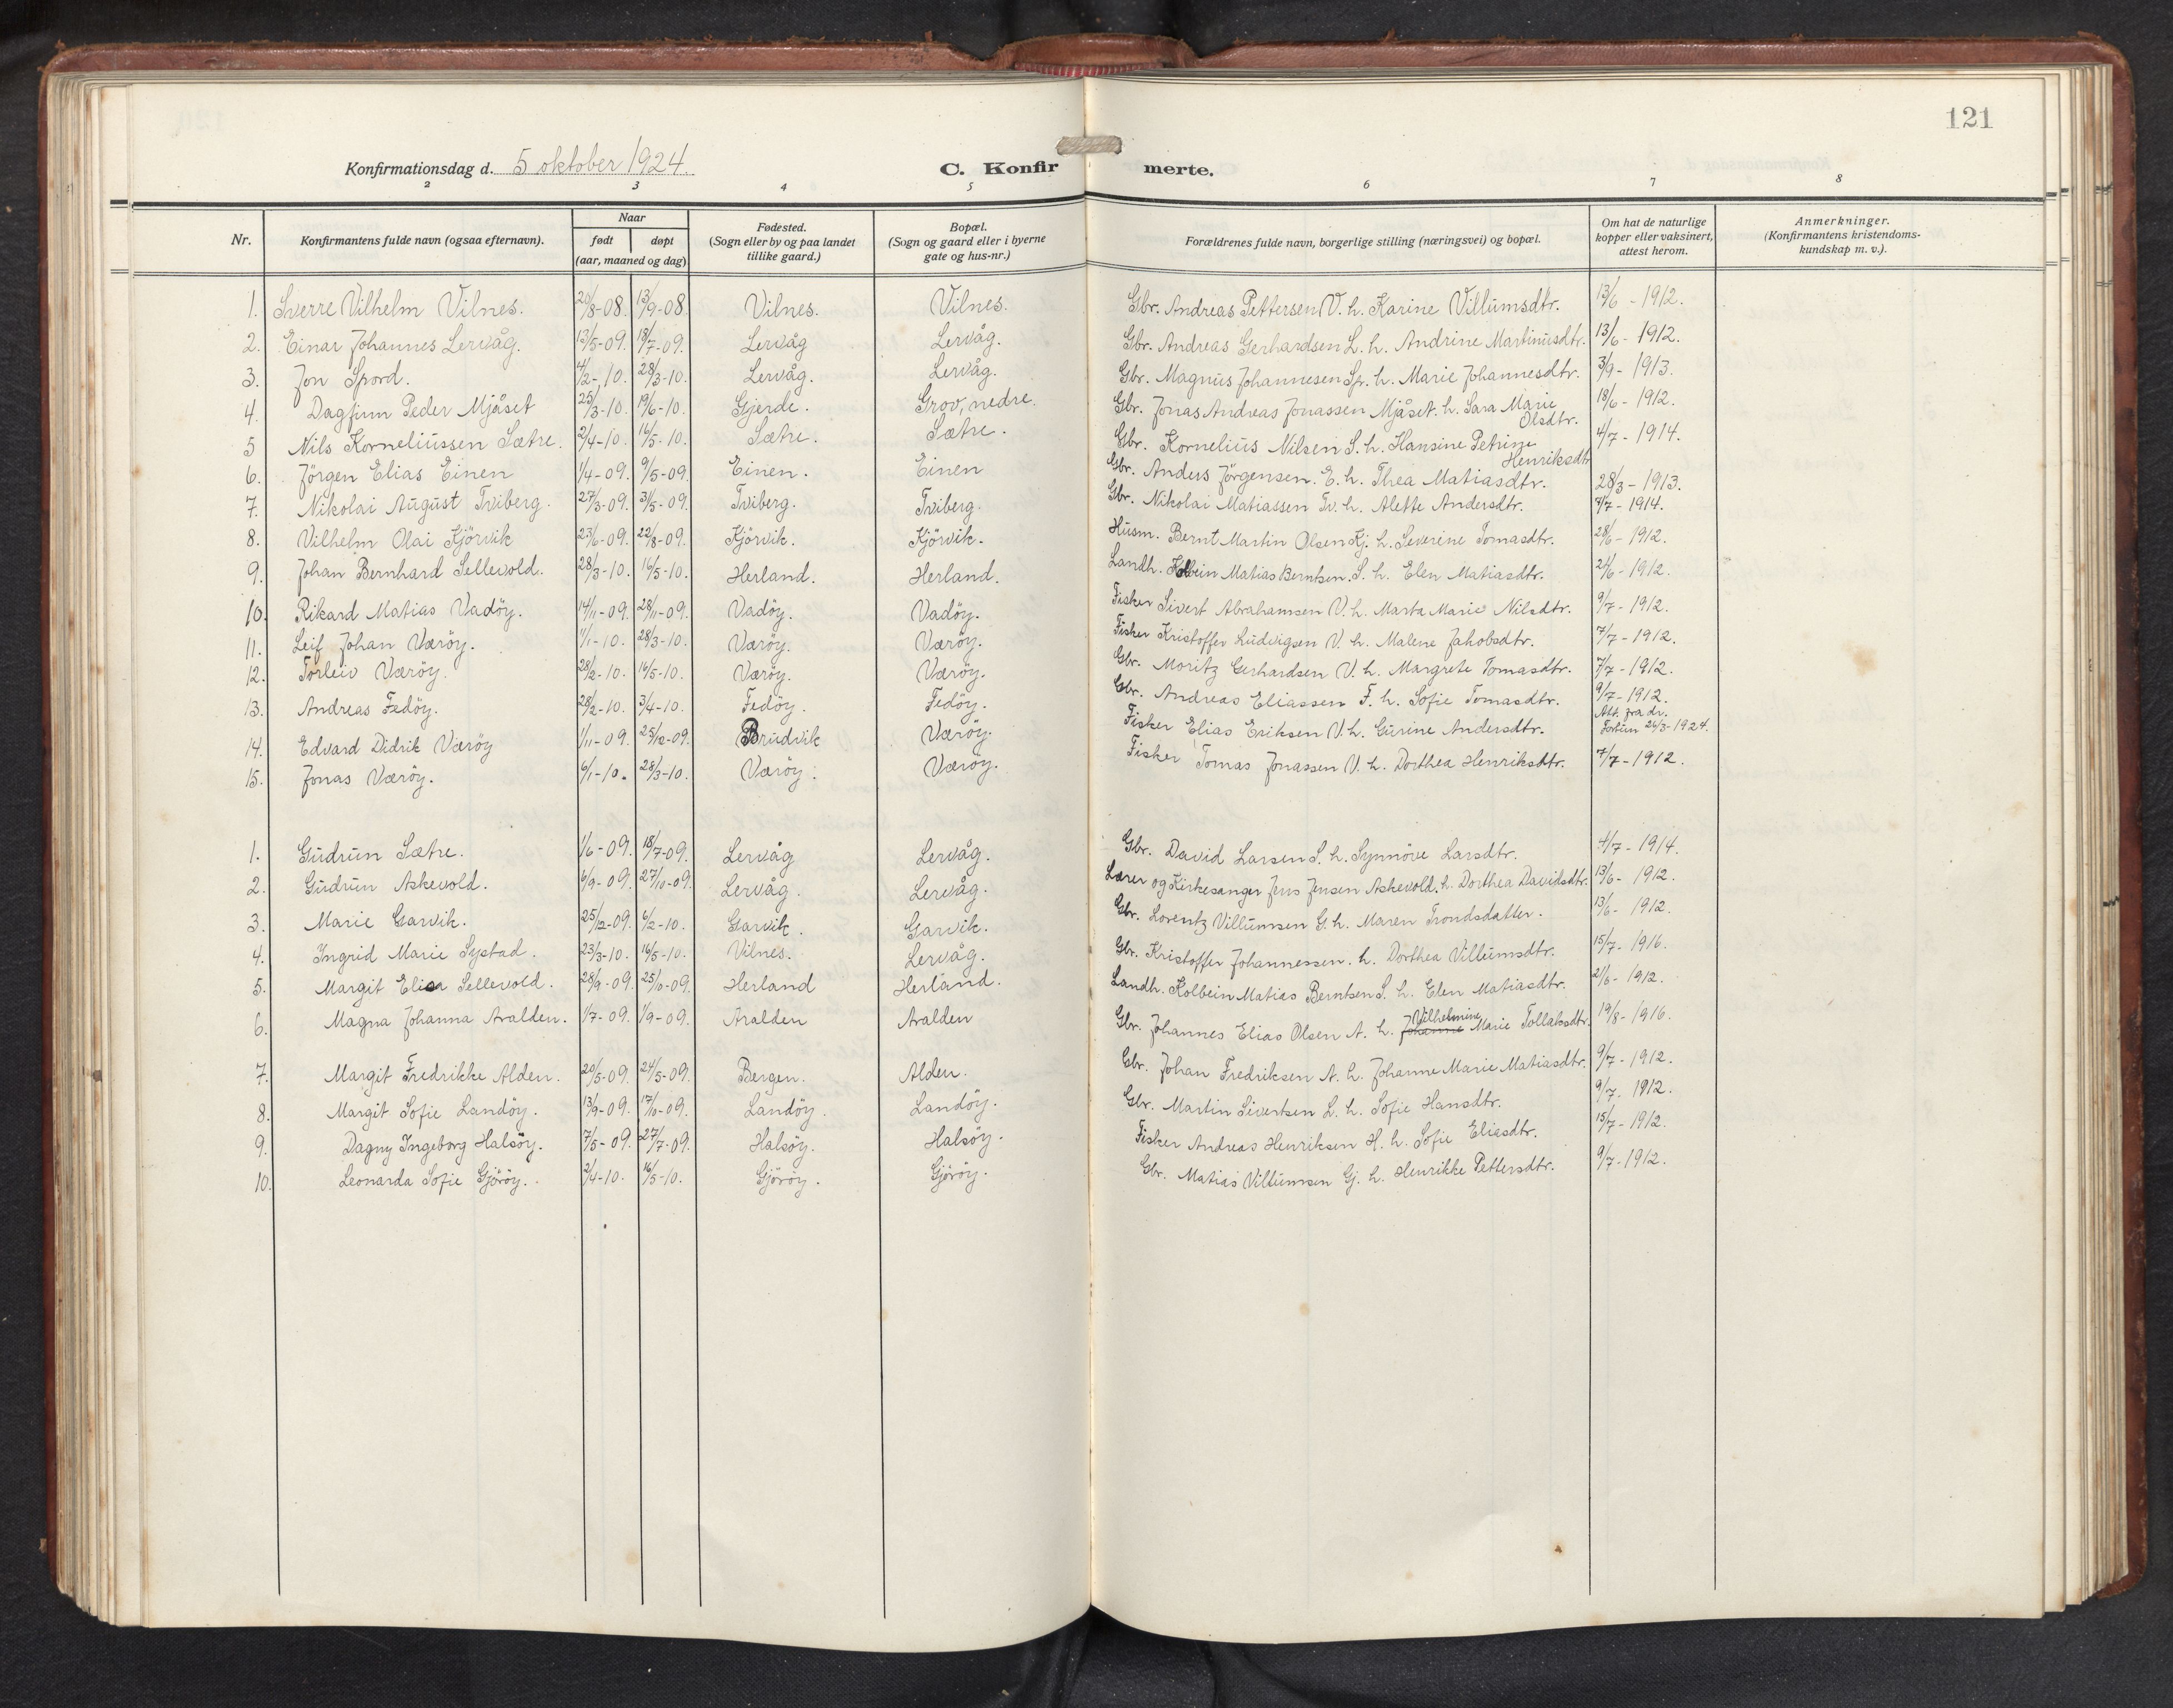 121
Konfirmationsdag d. 5 oktober 1924. C. Konfirmerte.
2 3 4 5 6 7 8
Nr. Konfirmantens fulde navn (ogsaa efternavn). Naar født døpt (aar, maaned og dag) Fødested. (Sogn eller by og paa landet tillike gaard.) Bopæl. (Sogn og gaard eller i byerne gate og hus-nr.) Forældrenes fulde navn, borgerlige stilling (næringsvei) og bopæl. Om hat de naturlige kopper eller vaksinert, attest herom. Anmerkninger. (Konfirmantens kristendoms-kundskap m. v.).
1. Sverre Vilhelm Vilnes. 20/8-08. 13/9-08. Vilnes. Vilnes. Gbr. Andreas Pettersen V. h. Karine Villumsdtr. 13/6 - 1912.
2. Einar Johannes Lervåg. 13/5-09. 18/7-09. Lervåg Lervåg. Gbr. Andreas Gerhardsen L. h. Andrine Martinusdtr. 13/6 - 1912.
3. Jon Spord. 4/2-10. 28/3-10. Lervåg. Lervåg. Gbr. Magnus Johannesen Sp. h. Marie Johannesdtr. 3/9 - 1913.
4. Dagfinn Peder Mjåset 25/3-10. 19/6-10. Gjerde. Grov, nedre. Gbr. Jonas Andreas Jonassen Mjåset. h. Sara Marie Olsdtr. 18/6 - 1912.
5 Nils Korneliussen Sætre. 2/4-10. 16/5-10. Sætre. Sætre. Gbr. Kornelius Nilsen S. h. Hansine Petrine Henriksdtr 4/7 - 1914.
6. Jörgen Elias Einen 1/4-09. 9/5-09. Einen. Einen Gbr. Anders Jörgensen. E. h. Thea Matiasdtr. 28/3 - 1913.
7. Nikolai August Tviberg. 27/3-09. 31/5-09. Tviberg. Tviberg. Gbr. Nikolai Matiassen Tv. h. Alette Andersdtr. 4/7 - 1914.
8. Vilhelm Olai Kjörvik 23/6-09. 22/8-09. Kjörvik. Kjörvik. Husm. Bernt Martin Olsen Kj. h. Severine Tomasdtr. 28/6 - 1912.
9. Johan Bernhard Sellevold. 28/3-10. 16/5-10. Herland. Herland. Landh. Kolbein Matias Berntsen. S. h. Elen Matiasdtr. 24/6 - 1912.
10. Rikard Matias Vadöy. 14/11-09. 28/11-09. Vadöy. Vadöy. Fisker Sivert Abrahamsen V. h. Marta Marie Nilsdtr. 9/7 - 1912.
11. Leif Johan Væröy. 1/1-10. 28/3-10. Væröy. Væröy. Fisker Kristoffer Ludvigsen V. h. Malene Jakobsdtr. 7/7 - 1912.
12. Torleiv Væröy. 28/2-10. 16/5-10. Væröy. Væröy. Gbr. Moritz Gerhardsen V. h. Margrete Tomasdtr. 7/7 - 1912.
13. Andreas Fedöy. 28/2-10. 3/4-10. Fedöy. Fedöy. Gbr. Andreas Eliassen F. h. Sofie Tomasdtr. 9/7 - 1912.
14. Edvard Didrik Væröy 1/11-09. 25/12-09. Brudvik Væröy. Fisker Elias Eriksen V. h. Gurine Andersdtr. Att. fra dr. Fortun 26/3-1924.
15. Jonas Væröy. 6/1-10. 28/3-10. Væröy. Væröy. Fisker Tomas Jonassen V. h. Dorthea Henriksdtr. 7/7-1912.
1. Gudrun Sætre. 1/6-09. 18/7-09. Lervåg Lervåg. Gbr. David Larsen S. h. Synnöve Larsdtr. 4/7 - 1914.
2. Gudrun Askevold. 6/9-09. 27/10-09. Lervåg. Lervåg. Lærer og Kirkesanger Jens Jensen Askevold. h. Dorthea Davidsdtr. 13/6 - 1912.
3. Marie Garvik. 25/12-09. 6/2-10. Garvik. Garvik. Gbr. Lorentz Villumsen G. h. Maren Trondsdatter. 13/6 - 1912.
4. Ingrid Marie Systad. 23/3-10. 16/5-10. Vilnes. Lervåg. Gbr. Kristoffer Johannessen. h. Dorthea Villumsdtr. 15/7 - 1916.
5. Margit Elisa Sellevold. 28/9-09. 25/10-09. Herland Herland. Landh. Kolbein Matias Berntsen S. h. Elen Matiasdtr. 21/6 - 1912.
6. Magna Johanna Aralden. 1/7-09. 1/9-09. Aralden Aralden Gbr. Johannes Elias Olsen A. h. Johanne Vilhelmine Marie Tollaksdtr. 19/8 - 1916.
7. Margit Fredrikke Alden. 20/5-09. 24/5-09. Bergen. Alden. Gbr. Johan Fredriksen A. h. Johanne Marie Matiasdtr. 9/7 - 1912.
8. Margit Sofie Landöy. 13/9-09. 17/10-09. Landöy. Landöy. Gbr. Martin Sivertsen L. h. Sofie Hansdtr. 9/7 - 1912.
9. Dagny Ingeborg Halsöy. 7/5-09. 27/7-09. Halsöy. Halsöy. Fisker Andreas Henriksen H. h. Sofie Eliasdtr. 15/7 - 1912.
10. Leonarda Sofie Gjöröy. 2/4-10. 16/5-10. Gjöröy. Gjöröy. Gbr. Matias Villumsen Gj. h. Henrikke Pettersdtr. 9/7-1912.